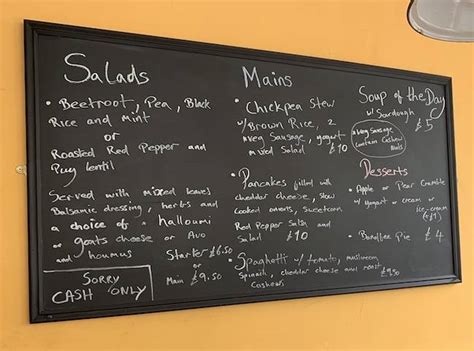 Salads
• Beetroot, Pea, Black
Rice and Mint
or
Roasted Red Pepper and
Puy lentil
Served with mixed leaves
Balsamic dressing, herbs and
a choice of halloumi
or goats cheese or Avo
and houmus
Starter £6.50
or
Main £9.50
SORRY
CASH ONLY
Mains
• Chickpea Stew
w/ Brown Rice, 2
Veg Sausage, yogurt
mixed Salad £10
• Pancakes filled with
cheddar cheese, slow
cooked onions, sweetcorn
Red Pepper Salsa and
Salad £10
• Spaghetti w/ tomato, mushroom
Spinach, cheddar cheese and roast
Cashews £9.50
Soup of the Day
w/ Sourdough £5
Veg Sausage
contain Cashew
Nuts
Desserts
• Apple or Pear Crumble
w/ yogurt or cream or
ice-cream
(+£1)
• Banoffee Pie £4